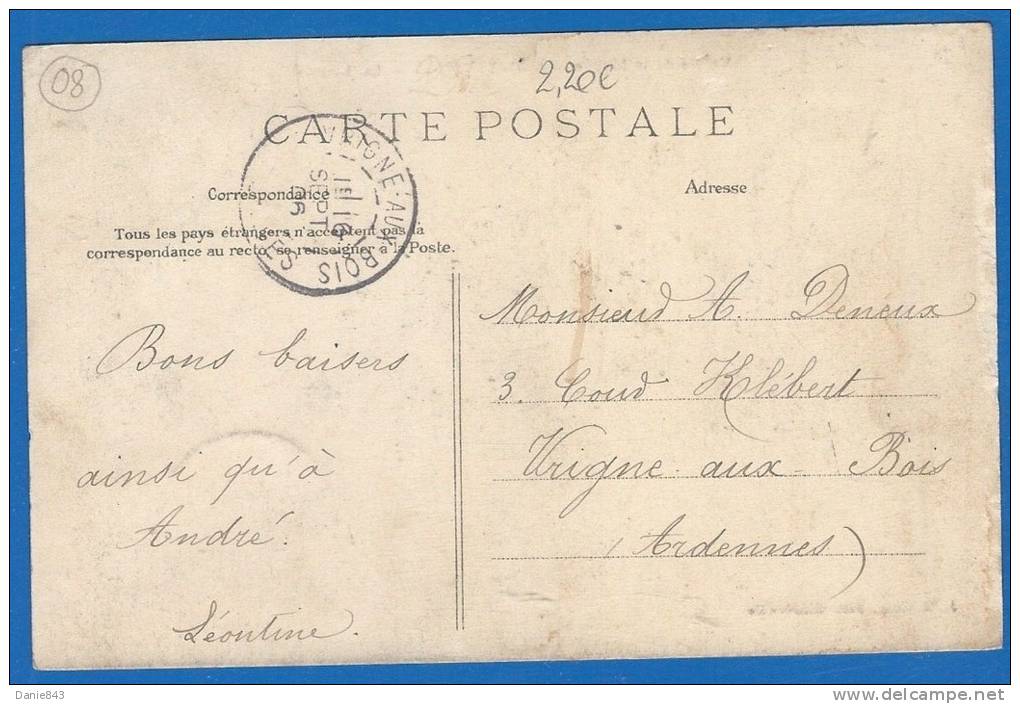 08
2,20€
CARTE POSTALE
VRIGNE-AUX-BOIS
16
SEPT
Correspondance
Adresse
Tous les pays étrangers n'acceptent pas la
correspondance au recto, se renseigner à la Poste.
Monsieur A. Deneux
3. Cour Klébert
Vrigne-aux-Bois
(Ardennes)
Bons baisers
ainsi qu'à
André.
Léontine.
Danie843
www.delcampe.net